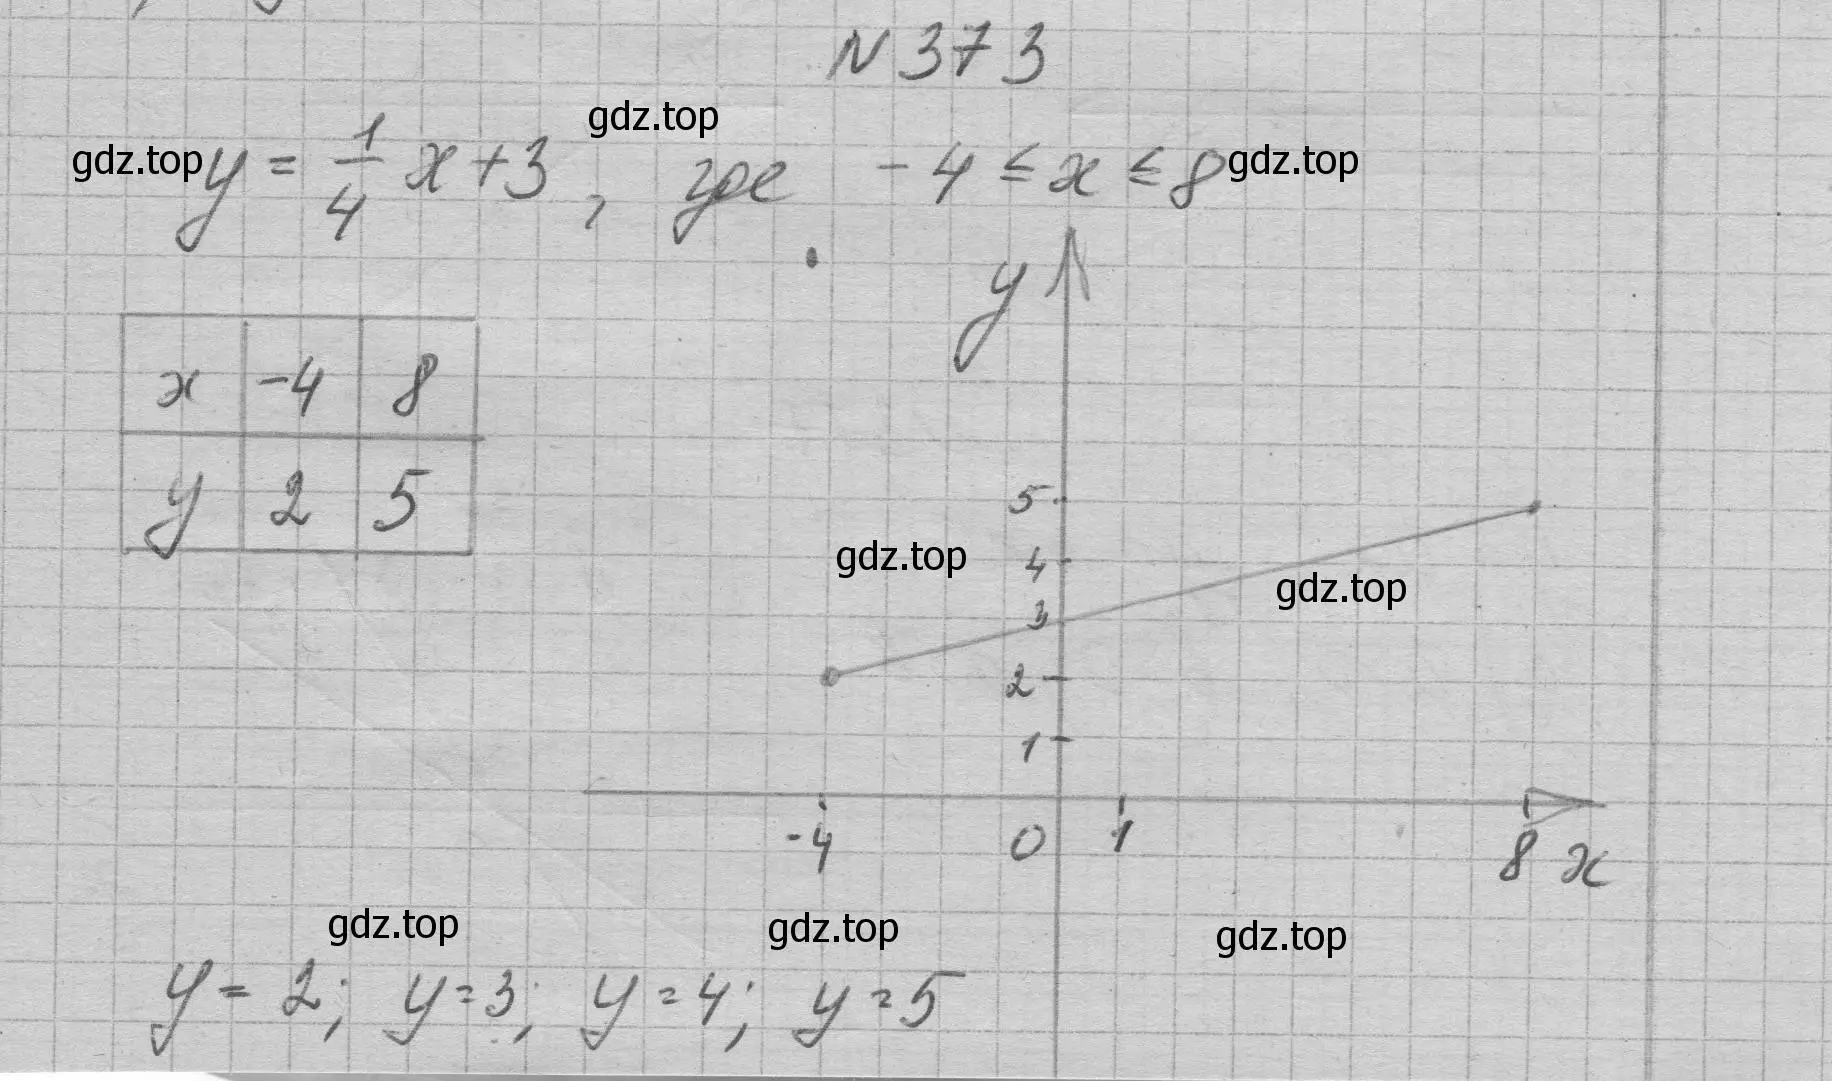 N 373
gdz.top
gdz.top y = 1/4 x + 3, где -4 ≤ x ≤ 8 gdz.top
y
x -4 8
y 2 5
5
gdz.top 4
gdz.top
3
2
1
-4 0 1 8 x
gdz.top gdz.top gdz.top
y = 2; y = 3; y = 4; y = 5